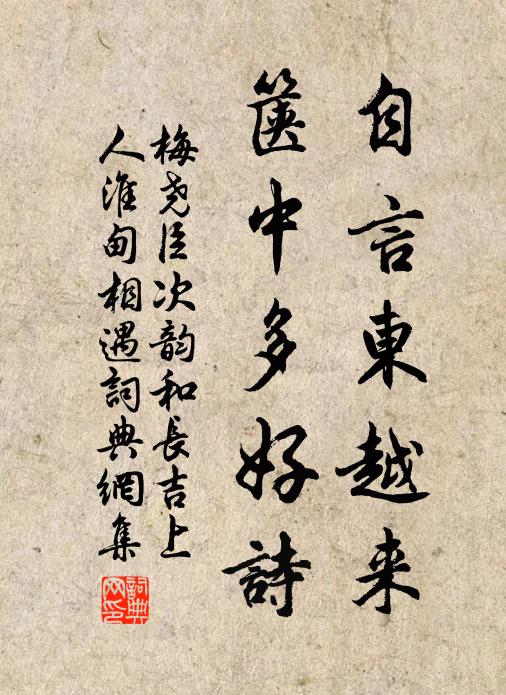 自言東越来
篋中多好詩
梅尧臣次韵和長吉上
人淮甸相遇詞典網集
詞典网印